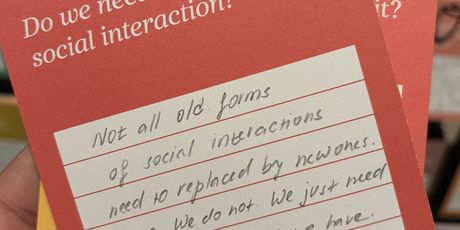 Do we need
social interaction?
it?
Not all old forms
of social interactions
need to replaced by new ones.
We do not. We just need
have.